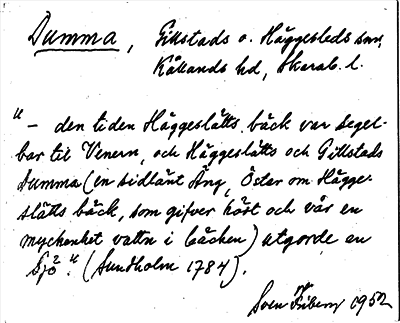 Dumma, Gillstads o. Häggesleds snr,
Kållands hd, Skarab. l.
"— den tiden Häggeslätts bäck var segel-
bar til Venern, och Häggeslätts och Gillstads
Dumma (en sidlänt Äng, Öster om Hägge-
slätts bäck, som gifver höst och vår en
myckenhet vattn i bäcken) utgorde en
Sjö." (Sundholm 1784).
Sven Friberg 1952